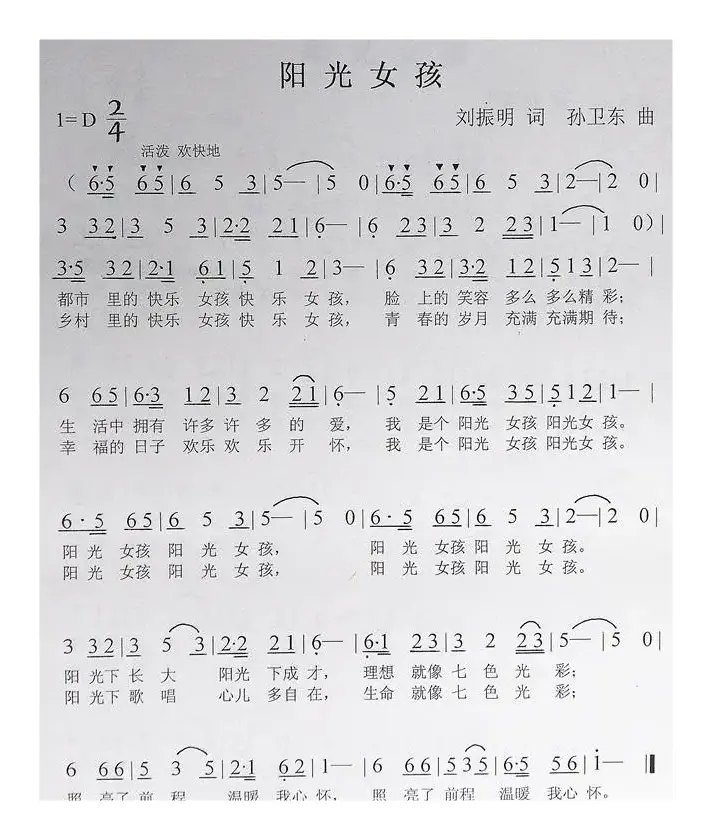 阳光女孩
1=D 2/4
刘振明 词 孙卫东 曲
活泼 欢快地
( 6·5 6 5 | 6 5 3 | 5— | 5 0 | 6·5 6 5 | 6 5 3 | 2— | 2 0 |
3 3 2 | 3 5 3 | 2·2 2 1 | 6— | 6 2 3 | 3 2 2 3 | 1— | 1 0 ) |
3·5 3 2 | 2·1 6 1 | 5 1 2 | 3— | 6 3 2 | 3·2 1 2 | 5 1 3 | 2— |
都市 里的 快乐 女孩 快 乐 女 孩, 脸 上的 笑容 多么 多么精 彩;
乡村 里的 快乐 女孩 快 乐 女 孩, 青 春的 岁月 充满 充满期 待;
6 6 5 | 6·3 1 2 | 3 2 2 1 | 6— | 5 2 1 | 6·5 3 5 | 5 1 2 | 1— |
生 活中 拥有 许多 许 多 的 爱, 我 是个 阳光 女孩 阳光女 孩。
幸 福的 日子 欢乐 欢 乐 开 怀, 我 是个 阳光 女孩 阳光女 孩。
6·5 6 5 | 6 5 3 | 5— | 5 0 | 6·5 6 5 | 6 5 3 | 2— | 2 0 |
阳 光 女孩 阳 光 女 孩, 阳 光 女孩 阳 光 女 孩。
阳 光 女孩 阳 光 女 孩, 阳 光 女孩 阳 光 女 孩。
3 3 2 | 3 5 3 | 2·2 2 1 | 6— | 6·1 2 3 | 3 2 2 3 | 5— | 5 0 |
阳 光下 长 大 阳光 下成 才, 理想 就像 七 色 光 彩;
阳 光下 歌 唱 心儿 多自 在, 生命 就像 七 色 光 彩;
6 6 6 | 5 3 5 | 2·1 6 2 | 1— | 6 6 6 | 5 3 5 | 6·5 5 6 | i— ‖
照 亮了 前 程 温暖 我心 怀, 照 亮了 前程 温暖 我心 怀。